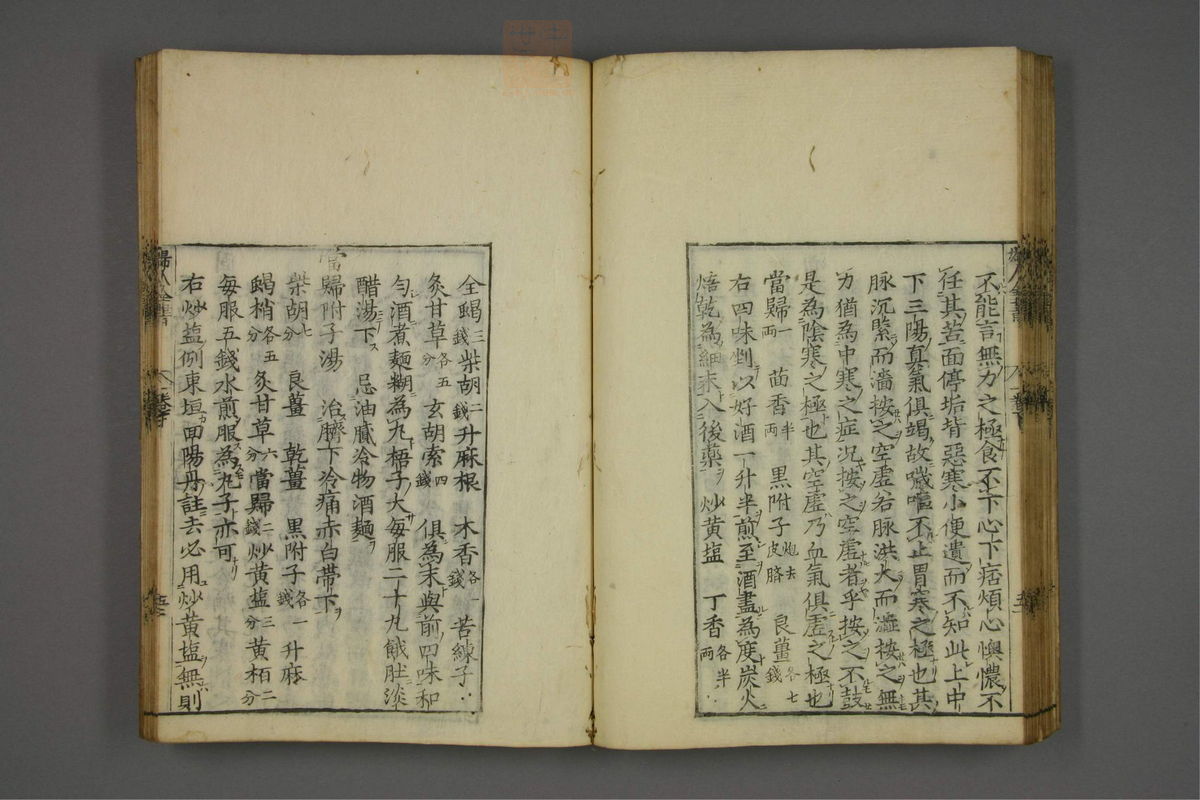 不能言無力之極食不下心下痞煩心懊憹不
任其苦面停垢背惡寒小便遺而不知此上中
下三陽真氣俱竭故噦嘔不止胃寒之極也其
脉沉緊而濇按之空虛若脉洪大而濇按之無
力猶為中寒之症况按之空虛者乎按之不鼓
是為陰寒之極也其空虛乃血氣俱虛之極也
當歸一兩 茴香半兩 黑附子炮去皮臍 良薑各七錢
右四味剉以好酒一升半煎至酒盡為度炭火
焙乾為細末入後藥 炒黄塩 丁香各半兩
全蝎三錢 柴胡二錢 升麻根 木香各一錢 苦練子
炙甘草各五分 玄胡索四錢 俱為末與前四味和
勻酒煮麵糊為丸梧子大每服二十丸餓肚淡
醋湯下 忌油膩冷物酒麵
當歸附子湯 治臍下冷痛赤白帶下
柴胡七分 良薑 乾薑 黑附子各一錢 升麻
蝎梢各五分 炙甘草六分 當歸二錢 炒黄塩三分 黄栢二分
每服五錢水煎服為丸子亦可
右炒塩例東垣回陽丹註去必用炒黄塩無則
婦人全書